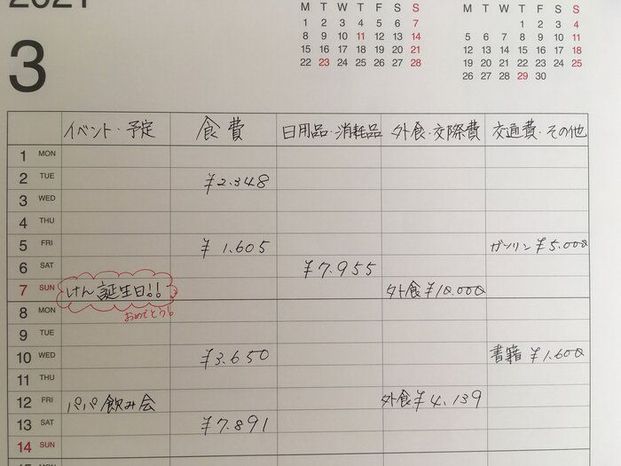 2021
3
M T W T F S S
1 2 3 4 5 6 7
8 9 10 11 12 13 14
15 16 17 18 19 20 21
22 23 24 25 26 27 28
M T W T F S S
1 2 3 4
5 6 7 8 9 10 11
12 13 14 15 16 17 18
19 20 21 22 23 24 25
26 27 28 29 30
イベント・予定 食費 日用品・消耗品 外食・交際費 交通費・その他
1 MON
2 TUE ¥2.348
3 WED
4 THU
5 FRI ¥1.605 ガソリン ¥5.000
6 SAT ¥7.955
7 SUN けん誕生日!! 外食¥10.000
おめでとう!
8 MON
9 TUE
10 WED ¥3.650 書籍 ¥1.600
11 THU
12 FRI パパ飲み会 外食¥4.139
13 SAT ¥7.891
14 SUN